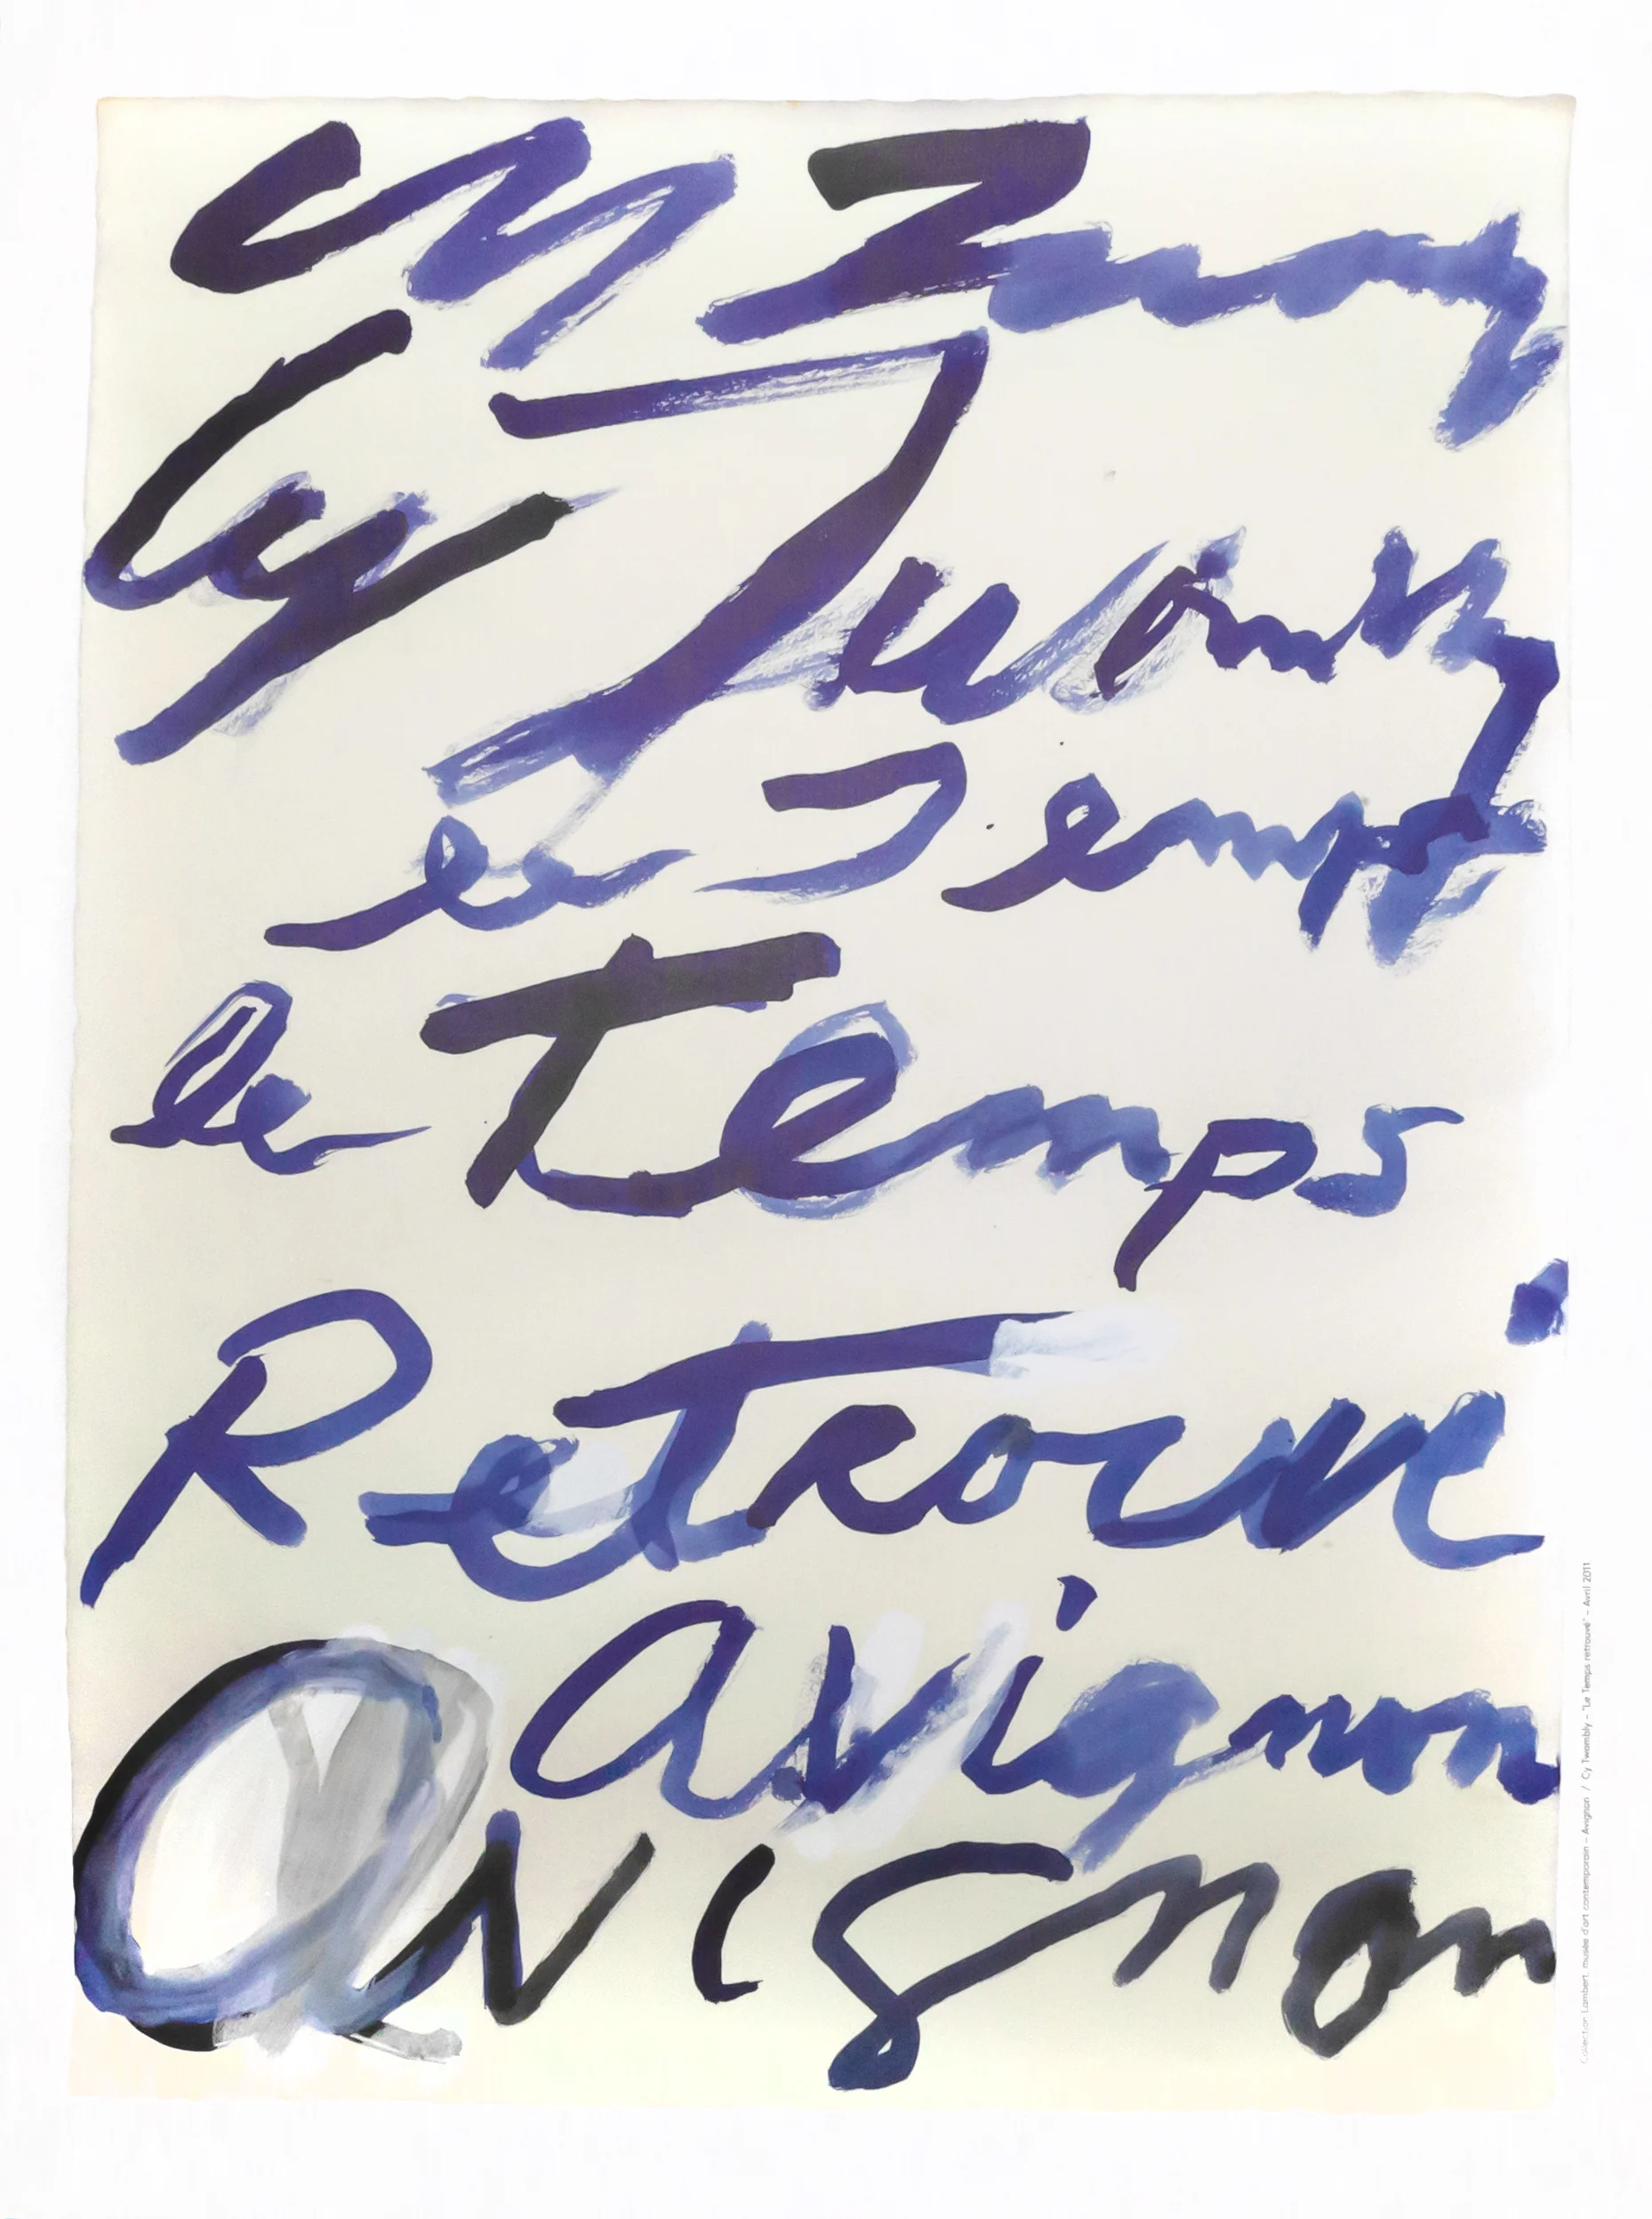 Cy Twomy
Cy Twombly
le Temps
le Temps
Retrouvé
avignon
avignon
Collection Lambert, musée d'art contemporain – Avignon / Cy Twombly – "Le Temps retrouvé" – Avril 2011